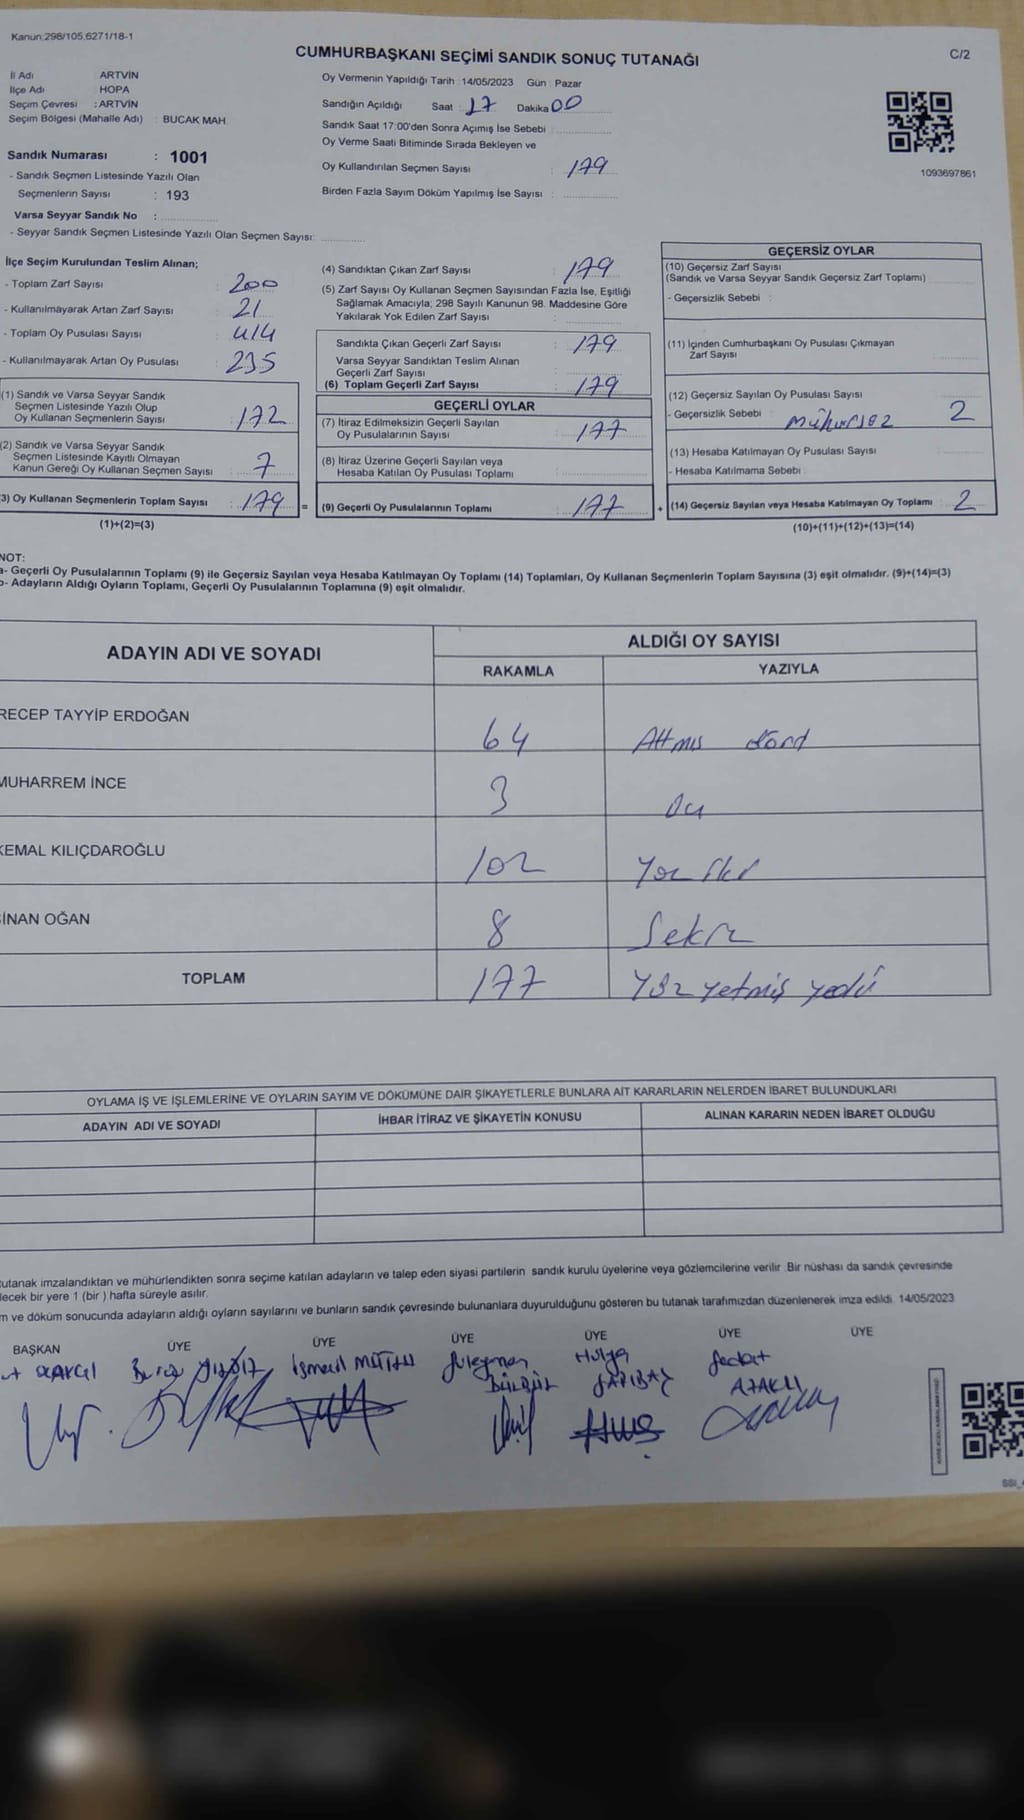 Kanun:298/105.6271/18-1
CUMHURBAŞKANI SEÇİMİ SANDIK SONUÇ TUTANAĞI
C/2
İl Adı : ARTVİN
İlçe Adı : HOPA
Seçim Çevresi : ARTVİN
Seçim Bölgesi (Mahalle Adı) : BUCAK MAH
Sandık Numarası : 1001
- Sandık Seçmen Listesinde Yazılı Olan
Seçmenlerin Sayısı : 193
Varsa Seyyar Sandık No :
- Seyyar Sandık Seçmen Listesinde Yazılı Olan Seçmen Sayısı:
Oy Vermenin Yapıldığı Tarih : 14/05/2023 Gün : Pazar
Sandığın Açıldığı Saat : 17 Dakika 00
Sandık Saat 17:00'den Sonra Açımış İse Sebebi :
Oy Verme Saati Bitiminde Sırada Bekleyen ve
Oy Kullandırılan Seçmen Sayısı : 179
Birden Fazla Sayım Döküm Yapılmış İse Sayısı :
1093697861
İlçe Seçim Kurulundan Teslim Alınan;
- Toplam Zarf Sayısı : 200
- Kullanılmayarak Artan Zarf Sayısı : 21
- Toplam Oy Pusulası Sayısı : 414
- Kullanılmayarak Artan Oy Pusulası : 235
(1) Sandık ve Varsa Seyyar Sandık
Seçmen Listesinde Yazılı Olup
Oy Kullanan Seçmenlerin Sayısı : 172
(2) Sandık ve Varsa Seyyar Sandık
Seçmen Listesinde Kayıtlı Olmayan
Kanun Gereği Oy Kullanan Seçmen Sayısı : 7
3) Oy Kullanan Seçmenlerin Toplam Sayısı : 179 =
(1)+(2)=(3)
(4) Sandıktan Çıkan Zarf Sayısı : 179
(5) Zarf Sayısı Oy Kullanan Seçmen Sayısından Fazla İse, Eşitliği
Sağlamak Amacıyla; 298 Sayılı Kanunun 98. Maddesine Göre
Yakılarak Yok Edilen Zarf Sayısı :
Sandıkta Çıkan Geçerli Zarf Sayısı : 179
Varsa Seyyar Sandıktan Teslim Alınan
Geçerli Zarf Sayısı :
(6) Toplam Geçerli Zarf Sayısı : 179
GEÇERLİ OYLAR
(7) İtiraz Edilmeksizin Geçerli Sayılan
Oy Pusulalarının Sayısı : 177
(8) İtiraz Üzerine Geçerli Sayılan veya
Hesaba Katılan Oy Pusulası Toplamı :
(9) Geçerli Oy Pusulalarının Toplamı : 177 +
GEÇERSİZ OYLAR
(10) Geçersiz Zarf Sayısı
(Sandık ve Varsa Seyyar Sandık Geçersiz Zarf Toplamı)
- Geçersizlik Sebebi :
(11) İçinden Cumhurbaşkanı Oy Pusulası Çıkmayan
Zarf Sayısı
(12) Geçersiz Sayılan Oy Pusulası Sayısı
- Geçersizlik Sebebi : mühürsüz 2
(13) Hesaba Katılmayan Oy Pusulası Sayısı
- Hesaba Katılmama Sebebi
(14) Geçersiz Sayılan veya Hesaba Katılmayan Oy Toplamı : 2
(10)+(11)+(12)+(13)=(14)
NOT:
a- Geçerli Oy Pusulalarının Toplamı (9) ile Geçersiz Sayılan veya Hesaba Katılmayan Oy Toplamı (14) Toplamları, Oy Kullanan Seçmenlerin Toplam Sayısına (3) eşit olmalıdır. (9)+(14)=(3)
b- Adayların Aldığı Oyların Toplamı, Geçerli Oy Pusulalarının Toplamına (9) eşit olmalıdır.
ADAYIN ADI VE SOYADI
ALDIĞI OY SAYISI
RAKAMLA YAZIYLA
RECEP TAYYİP ERDOĞAN 64 Altmış dörd
MUHARREM İNCE 3 Üç
KEMAL KILIÇDAROĞLU 102 Yüz İki
SİNAN OĞAN 8 Sekiz
TOPLAM 177 Yüz yetmiş yedi
OYLAMA İŞ VE İŞLEMLERİNE VE OYLARIN SAYIM VE DÖKÜMÜNE DAİR ŞİKAYETLERLE BUNLARA AİT KARARLARIN NELERDEN İBARET BULUNDUKLARI
ADAYIN ADI VE SOYADI İHBAR İTİRAZ VE ŞİKAYETİN KONUSU ALINAN KARARIN NEDEN İBARET OLDUĞU
tutanak imzalandıktan ve mühürlendikten sonra seçime katılan adayların ve talep eden siyasi partilerin sandık kurulu üyelerine veya gözlemcilerine verilir. Bir nüshası da sandık çevresinde
lecek bir yere 1 (bir ) hafta süreyle asılır.
m ve döküm sonucunda adayların aldığı oyların sayılarını ve bunların sandık çevresinde bulunanlara duyurulduğunu gösteren bu tutanak tarafımızdan düzenlenerek imza edildi. 14/05/2023
BAŞKAN ÜYE ÜYE ÜYE ÜYE ÜYE ÜYE
İsmail Süleyman Hülya Sedat
BÜLBÜL ATAKLI